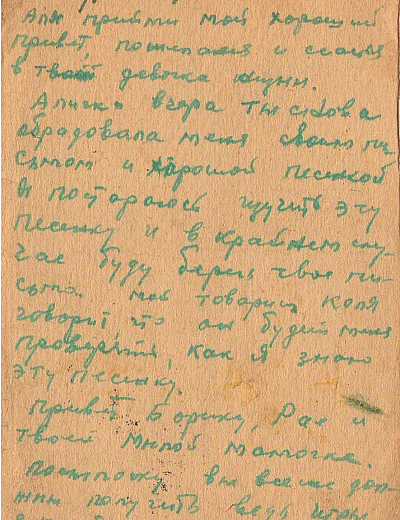 Аля прийми мой хороший
привет, пожелания и счастья
в твоей девочка жизни.
Алочка вчера ты снова
обрадовала меня своим пи-
сьмом и хорошой песенкой
Я постараюсь изучить эту
песенку и в крайнем слу-
чае буду беречь твое пи-
сьмо. мой товарищ Коля
говорит что он будит меня
проверять, как я знаю
эту песенку.
Привет Борику, Рае и
твоей милой мамочке.
посылочку вы всеже дол-
жны получить ведь